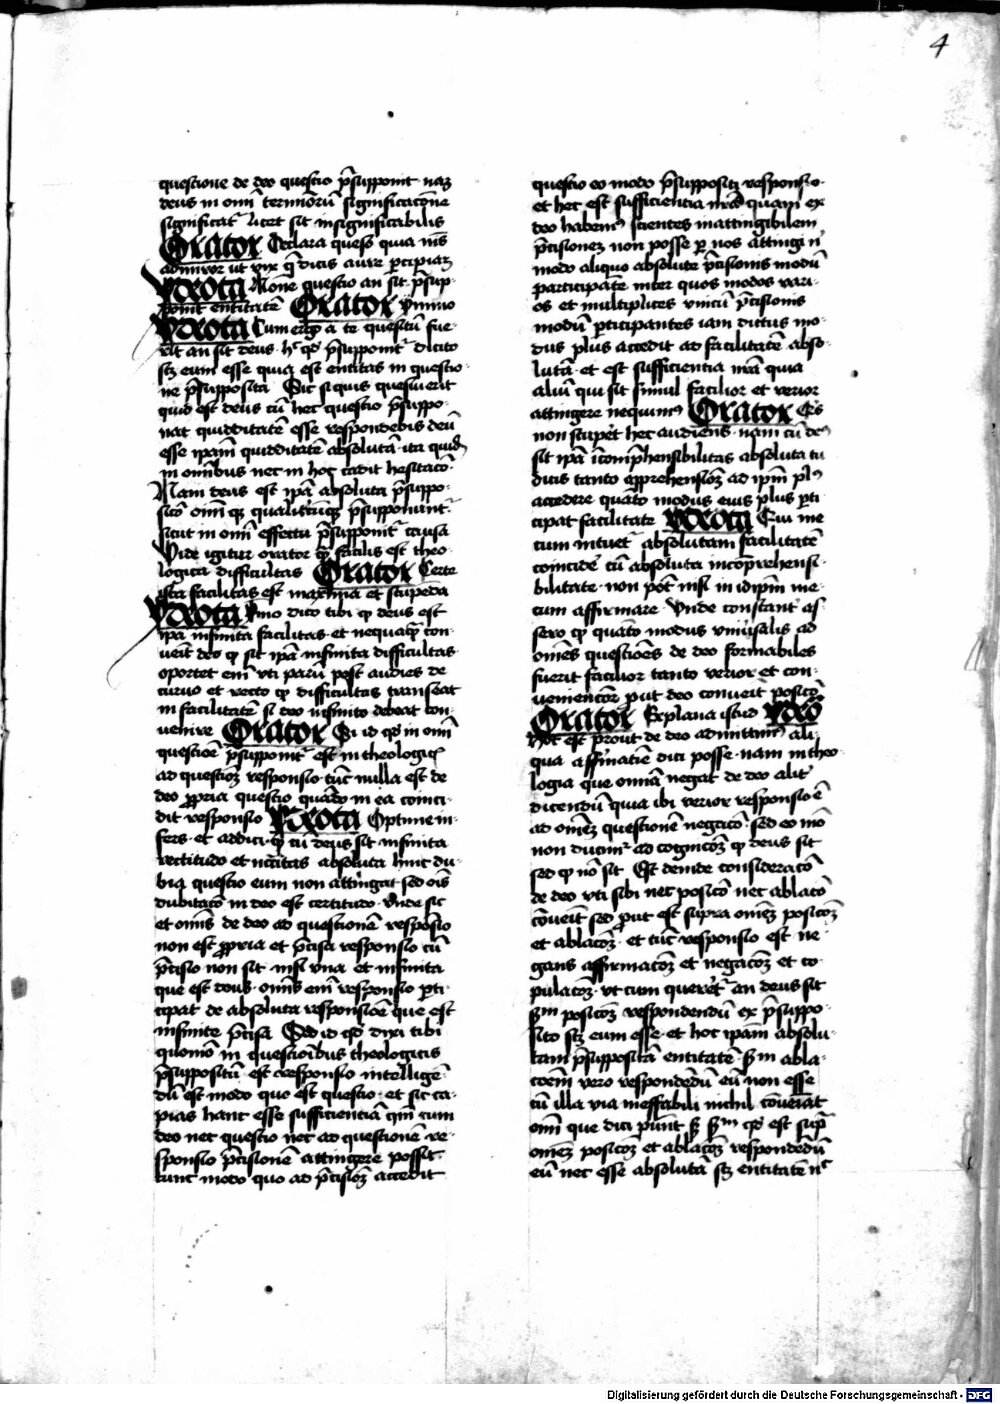 4
questione de deo questio p̄supponit · nā
deus in om̄i terminoꝝ significacōne
significat᷑ licet sit insignificabilis
Orator Declara queso quia nīs
admiror ut vix q̄ dicis aure percipiaꝫ
Ydeota None questio an sit p̄sup-
ponit entitatē Orator Ymmo
Ydeota Cum ergo a te quesitū fue-
rit an sit deus · h̄ qđ p̄supponit᷑ dicito
scꝫ eum esse quia est entitas in questio-
ne p̄supposita Sic si quis quesiuerit
quid est deus cū hec questio p̄suppo-
nat quidditatē esse respondebis deū
esse ip̄am quidditatē absolutā · ita quidē
in om̄ibus nec in hoc cadit hesitacō ·
Nam deus est ip̄a absoluta p̄suppo-
sicō om̄i qꝫ qualitercūqꝫ p̄supponunt᷑ ·
sicut in om̄i effectu p̄supponit᷑ causa
Vide igitur orator q̄ facilis est theo-
logica difficultas Orator Certe
ista facilitas est maxima et stupēda
Ydeota Ymo dico tibi ꝙ deus est
ip̄a infinita facilitas · et nequaq̄ con-
ueit deo ꝙ sit ip̄a infinita difficultas
oportet em̄ vti parū post audies de
curuo et recto ꝙ difficultas transeat
in facilitatē si deo infinito debeat con-
uenire Orator Si id qđ in om̄i
questiōe p̄supponit᷑ est in theologicꝭ
ad questiōꝫ responsio tūc nulla est de
deo ꝓpria questio quādo in ea coinci-
dit responsio Ydeota Optime in-
fers · et addici · ꝙ cū deus sit infinita
rectitudo et nc̄citas absoluta hinc du-
bia questio eum non attingat sed oīs
dubitacō in deo est certitudo · Vnde sic
et om̄is de deo ad questionē respōsio
non est ꝓpria et p̄cisa responsio cū
p̄cisio non sit nisi vna et infinita
que est deus · om̄is em̄ responsio p̄ti-
cipat de absoluta responsiōe que est
infinite p̄cisa Sed id qđ dixi tibi
quomō in questiōibus theologicis
p̄suppositū est responsio intellige-
dū est modo quo est questio · et sic ca-
pias hanc esse sufficientiā qm̄ cum
deo nec questio nec ad questionē re-
sponsio p̄cisionē attingere possit
tunc modo quo ad p̄cisiōꝫ accedit
questio eo modo p̄suppositꝫ responsio ·
et hec est sufficientia nr̄a quam ex
deo habem᷑ scientes inattingibilem
p̄cisionez non posse per nos attingi n̄
modo aliquo absolute p̄cisionis modū
participate inter quos modos vari-
os et multiplices vnicū p̄cisionis
modū p̄ticipantes iam dictus mo-
dus plus accedit ad facilitatē abso-
lutā · et est sufficientia nr̄a quia
aliū qui sit simul facilior et verior
attingere nequim᷑ Orator Qͥs
non stupet hec audiens · nam cū de᷑
sit ip̄a īcomp̄hensibilitas absoluta tu
dicis tanto app̄rehensiōꝫ ad ip̄m pl᷑
accedere quāto modus eius plus p̄ti-
cipat facilitatē Ydeota Qui me-
cum intuet᷑ absolutam facilitatē
coincidē cū absoluta incomp̄rehensi-
bilitate · non pōt nisi in idip̄m me-
cum affirmare Vnde constant as-
sero ꝙ quāto modus vniūsalis ad
omēs questiōēs de deo formabiles
fuerit facilior tanto verior et con-
uenienciōr put deo conueit posicō
Orator Explana istud Ydeō
Hoc est prout de deo admittim᷑ ali-
qua affirmatiē dici posse · nam in theo-
logia que omīa negat de deo alit᷑
dicendū quia ibi verior responsio ē
ad om̄eꝫ questionē negacō · sed eo mō
non ducim᷑ ad cognicōꝫ ꝙ deus sit
sed ꝙ nō sit Est deinde consideracō
de deo vti sibi nec posicō nec ablacō
cōueit sed put est supra om̄eꝫ posicōꝫ
et ablacōꝫ · et tūc responsio est ne-
gans affirmacōꝫ et negacōꝫ et co-
pulacōꝫ · vt cum queret᷑ an deus sit
s̄m posicōꝫ respondendū ex p̄suppo-
sito scꝫ eum esse · et hoc ip̄am absolu-
tam p̄suppositā entitatē · s̄m abla-
cōem vero respondēdū eū non esse
cū illa via ineffabili nichil cōueīat
om̄i que dici pūnt Sꝫ s̄m qđ est sup̄
om̄eꝫ posicōꝫ et ablacōꝫ respondēdū
eū nec esse absolutā scꝫ entitatē n᷑
Digitalisierung gefördert durch die Deutsche Forschungsgemeinschaft - DFG